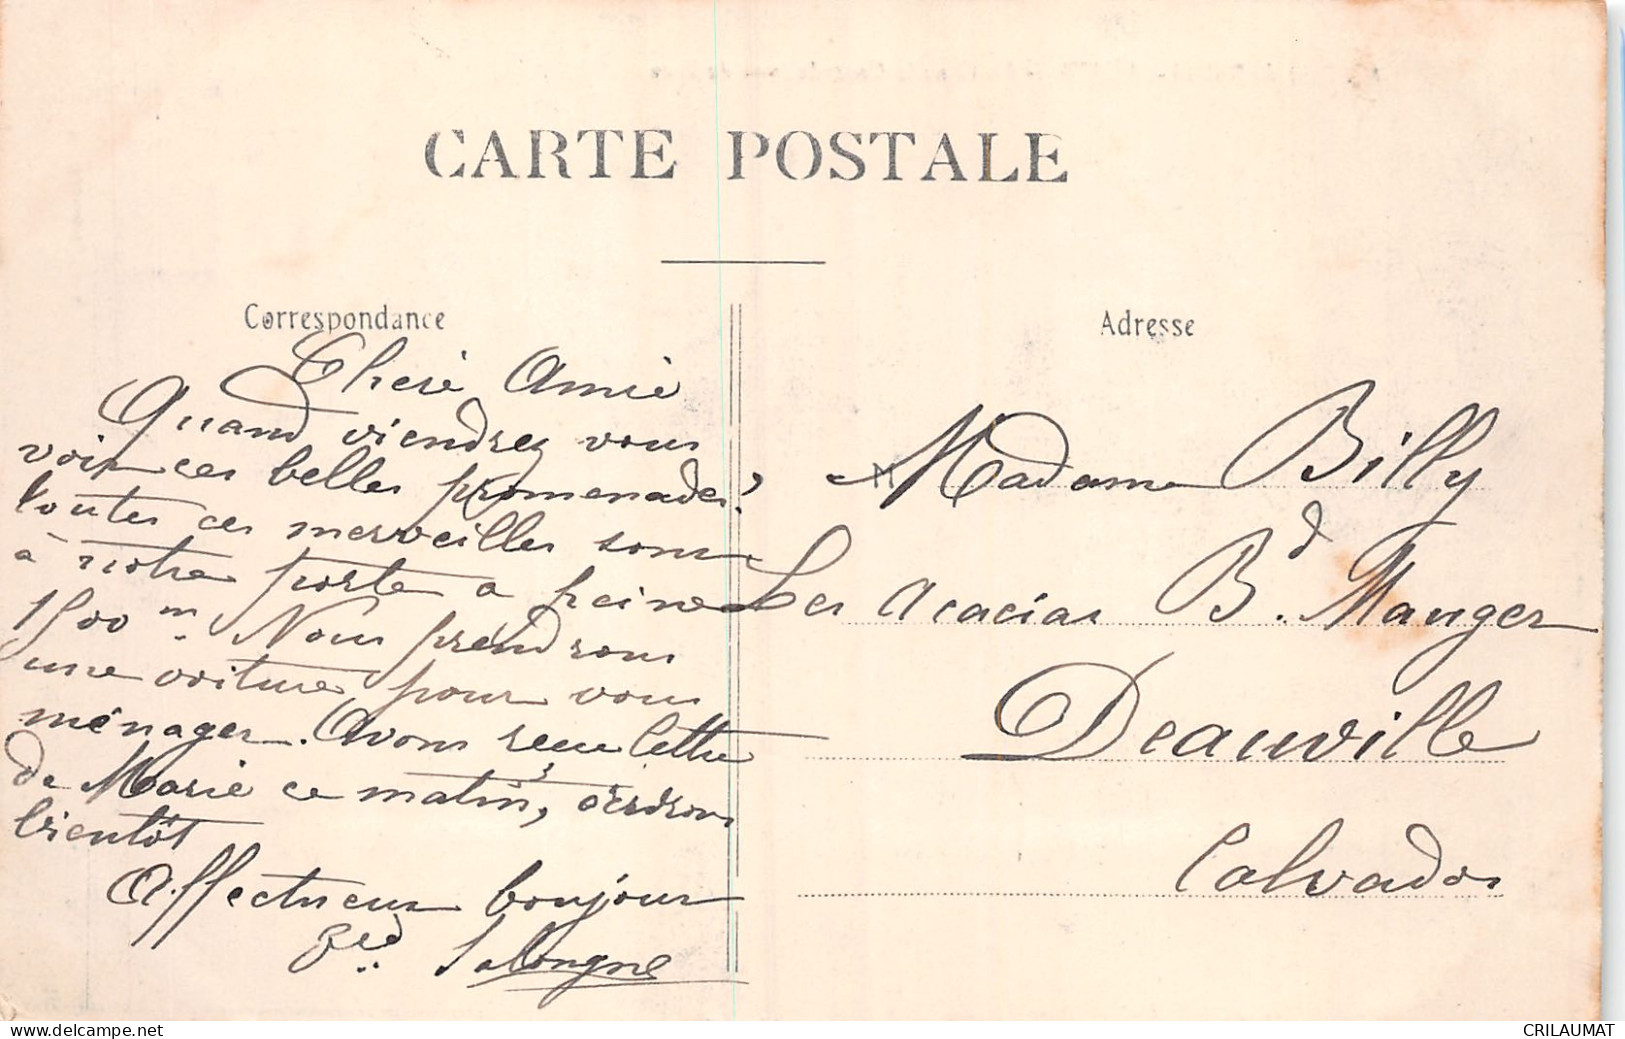 CARTE POSTALE
Correspondance
Adresse
Cheré Amie
Quand viendrez vous
voir ces belles promenades?
toutes ces merveilles sont
à notre porte a peine
1500 m. Nous prendrons
une voiture, pour vous
ménager. Avons reçu lettre
de Marie ce matin,
bientôt
Affectueux bonjour
Madame Billy
Les Acacias Bd. Mauger
Deauville
Calvados
CRILAUMAT